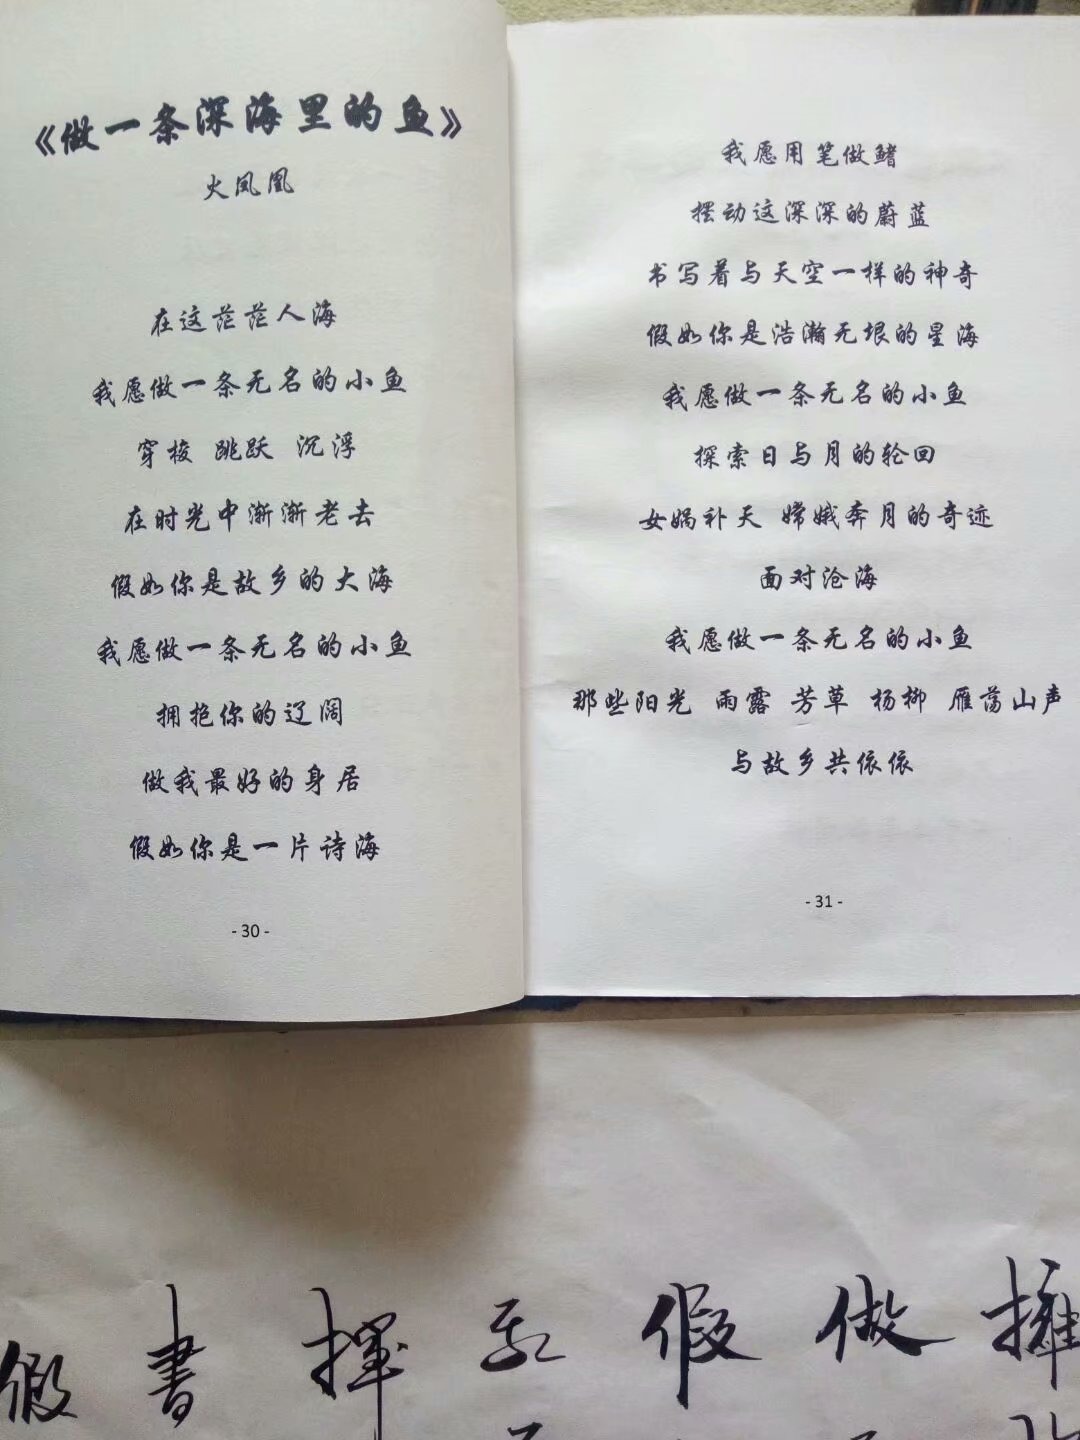 《做一条深海里的鱼》
火凤凰
在这茫茫人海
我愿做一条无名的小鱼
穿梭 跳跃 沉浮
在时光中渐渐老去
假如你是故乡的大海
我愿做一条无名的小鱼
拥抱你的辽阔
做我最好的身居
假如你是一片诗海
- 30 -
我愿用笔做鳍
摆动这深深的蔚蓝
书写着与天空一样的神奇
假如你是浩瀚无垠的星海
我愿做一条无名的小鱼
探索日与月的轮回
女娲补天 嫦娥奔月的奇迹
面对沧海
我愿做一条无名的小鱼
那些阳光 雨露 芳草 杨柳 雁荡山声
与故乡共依依
- 31 -
擁
做
假
我
揮
書
假